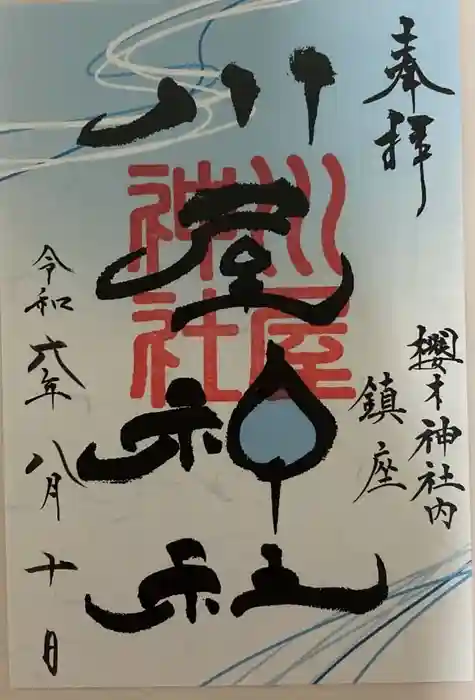 奉拝
櫻木神社内
鎮座
川屋神社
川屋神社
令和六年八月十日